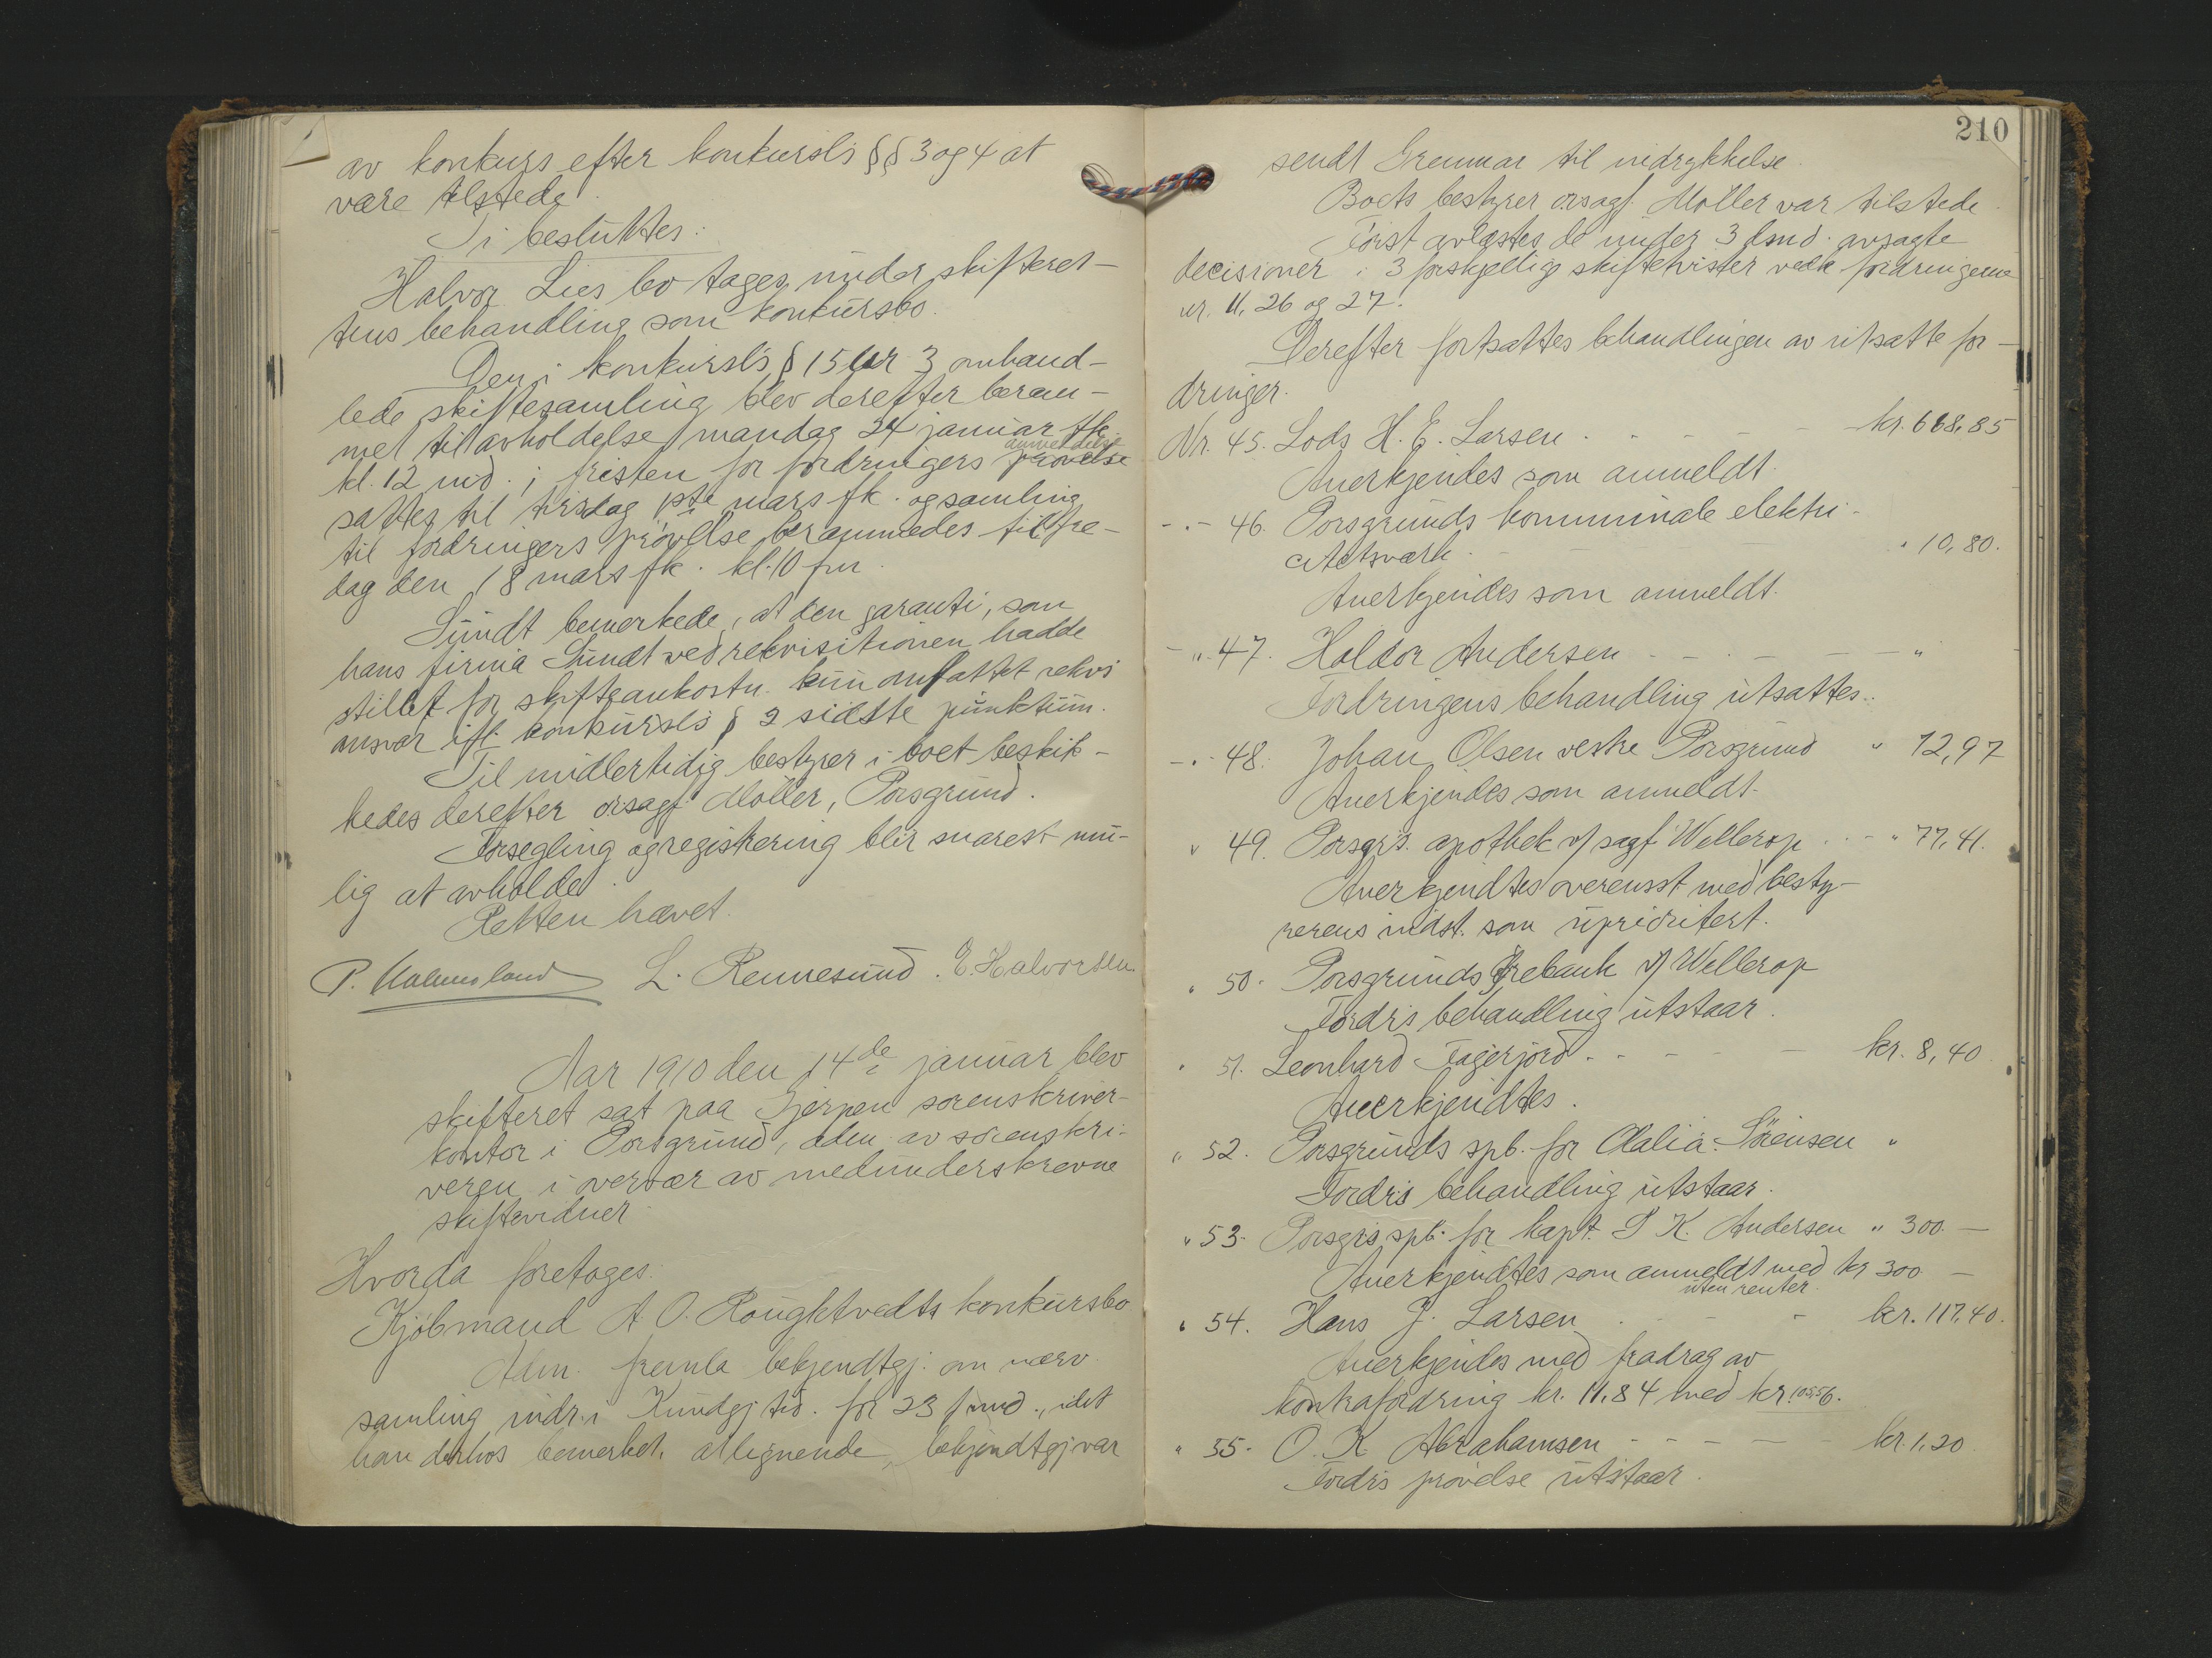 av konkurs efter konkursl's §§ 3 og 4 at
være tilstede.
Ti besluttes:
Halvor Lies bo tages under skifteret-
tens behandling som konkursbo.
Den i konkursl's § 15 nr 3 omhand-
lede skiftesamling blev derefter beram-
met til avholdelse mandag 24 januar fk.
kl. 12 md. i fristen for fordringers anmeldelse
sattes til tirsdag 1ste mars fk. og samling
til fordringers prøvelse berammedes til fre-
dag den 18 mars fk. kl. 10 fm.
Sundt bemerkede, at den garanti, som
hans firma Sundt ved rekvisitionen hadde
stillet for skifteomkostn. kun omfattet rekvs
ansvar ifl. konkursl's § 2 sidste punktum.
Til midlertidig bestyrer i boet beskik-
kedes derefter o.r.sagf. Møller, Porsgrund.
Forsegling og registrering blir snarest mu-
lig at avholde.
Retten hævet.
P. Holmsland L. Rennesund. E. Halvorsen
Aar 1910 den 14de januar blev
skifteret sat paa Gjerpen sorenskriver-
kontor i Porsgrund, adm. av sorenskri-
veren i overvær av medunderskrevne
skiftevidner.
Hvorda foretages:
Kjøbmand A. O. Roughtvedts konkursbo
Adm. fremla bekjendtgj. om nærv.
samling indr. i Kundgj. tid. for 23 f. md., idet
han derhos bemerket, at lignende bekjendtgj. var
210
sendt Grenmar til indrykkelse.
Boets bestyrer o.r.sagf. Møller var tilstede.
Først avlæstes de under 3 dsmd. avsagte
decisioner i 3 forskjellige skiftetvister vedk. fordringerne
nr. 11, 26 og 27.
Derefter fortsattes behandlingen av utsatte for-
dringer.
Nr. 45. Lods H. E. Larsen kr. 668,85
Anerkjendes som anmeldt.
-"- 46. Porsgrunds kommunale elektri-
citetsværk " 10,80.
Anerkjendes som anmeldt.
-"- 47. Haldor Andersen - - - - "
Fordringens behandling utsattes.
-"- 48. Johan Olsen vestre Porsgrund " 72,97
Anerkjendes som anmeldt.
" 49. Porsgr's. apothek v/ sagf. Wellerop - " 77,41.
Anerkjendtes overensst. med besty-
rerens indst. som uprioritert.
" 50. Porsgrunds Ørebank v/ Wellerop
Fordr's behandling utstaar.
" 51. Leonhard Fagerjord - - - kr. 8,40.
Anerkjendtes.
" 52. Porsgrunds spb. for Olalia Sørensen "
Fordr's behandling utstaar.
" 53. Porsgr's spb. for kapt. S K. Andersen " 300.—
Anerkjendtes som anmeldt med kr 300.—
uten renter.
" 54. Hans J. Larsen - - kr. 117,40.
Anerkjendes med fradrag av
kontrafordring kr. 11.84 med kr. 105,56.
" 55. O. K. Abrahamsen - - - - - kr. 1,20
Fordr's prøvelse utstaar.